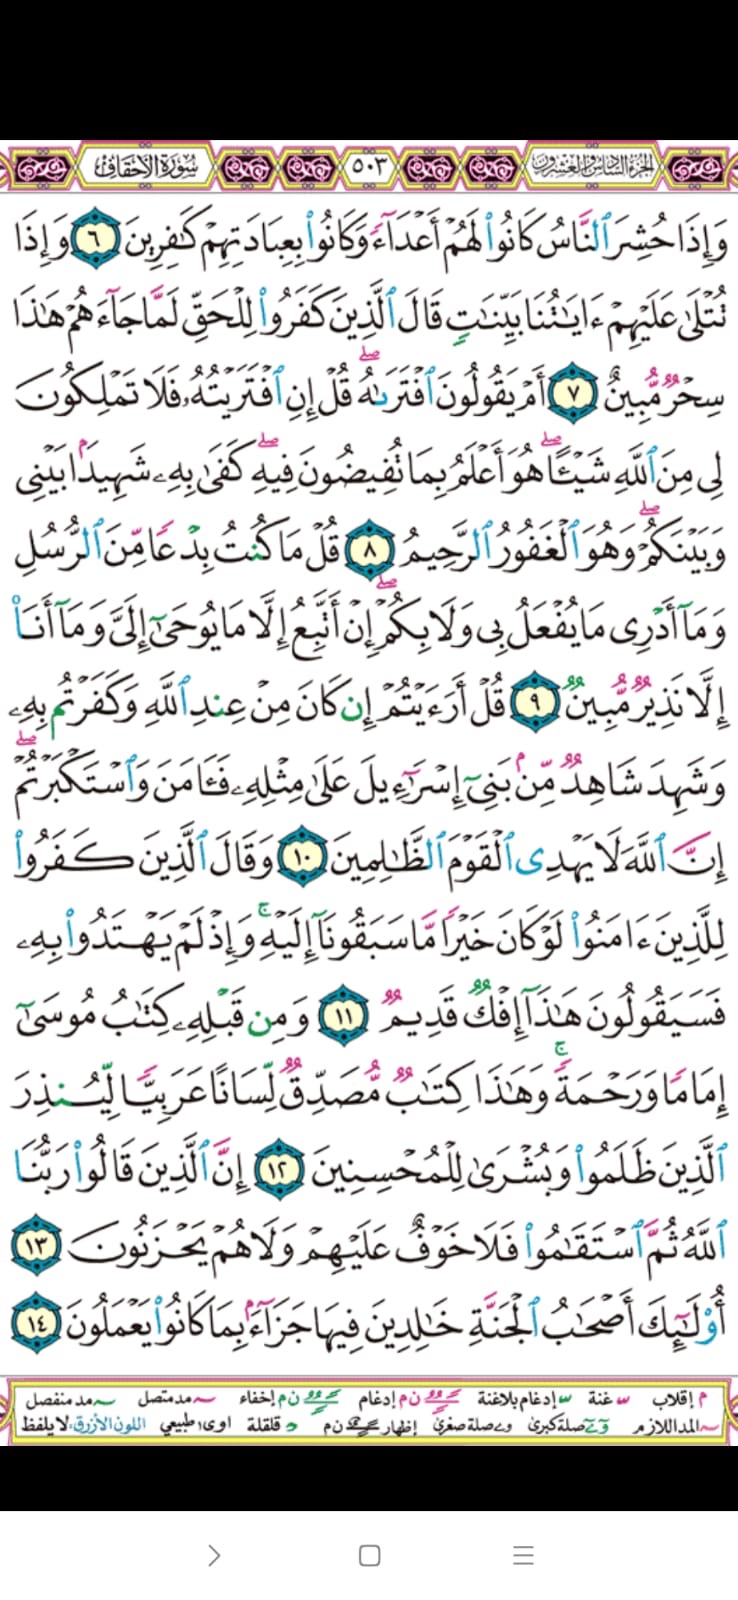 سُورَةُ الأَحْقَافِ ٥٠٣ الجُزْءُ السَّادِسُ وَالعِشْرُونَ
وَإِذَا حُشِرَ ٱلنَّاسُ كَانُوا۟ لَهُمْ أَعْدَآءً وَكَانُوا۟ بِعِبَادَتِهِمْ كَـٰفِرِينَ ٦ وَإِذَا
تُتْلَىٰ عَلَيْهِمْ ءَايَـٰتُنَا بَيِّنَـٰتٍ قَالَ ٱلَّذِينَ كَفَرُوا۟ لِلْحَقِّ لَمَّا جَآءَهُمْ هَـٰذَا
سِحْرٌ مُّبِينٌ ٧ أَمْ يَقُولُونَ ٱفْتَرَىٰهُ ۖ قُلْ إِنِ ٱفْتَرَيْتُهُۥ فَلَا تَمْلِكُونَ
لِى مِنَ ٱللَّهِ شَيْـًٔا ۖ هُوَ أَعْلَمُ بِمَا تُفِيضُونَ فِيهِ ۖ كَفَىٰ بِهِۦ شَهِيدًۢا بَيْنِى
وَبَيْنَكُمْ ۖ وَهُوَ ٱلْغَفُورُ ٱلرَّحِيمُ ٨ قُلْ مَا كُنتُ بِدْعًا مِّنَ ٱلرُّسُلِ
وَمَآ أَدْرِى مَا يُفْعَلُ بِى وَلَا بِكُمْ ۖ إِنْ أَتَّبِعُ إِلَّا مَا يُوحَىٰٓ إِلَىَّ وَمَآ أَنَا۠
إِلَّا نَذِيرٌ مُّبِينٌ ٩ قُلْ أَرَءَيْتُمْ إِن كَانَ مِنْ عِندِ ٱللَّهِ وَكَفَرْتُم بِهِۦ
وَشَهِدَ شَاهِدٌ مِّنۢ بَنِىٓ إِسْرَٰٓءِيلَ عَلَىٰ مِثْلِهِۦ فَـَٔامَنَ وَٱسْتَكْبَرْتُمْ ۖ
إِنَّ ٱللَّهَ لَا يَهْدِى ٱلْقَوْمَ ٱلظَّـٰلِمِينَ ١٠ وَقَالَ ٱلَّذِينَ كَفَرُوا۟
لِلَّذِينَ ءَامَنُوا۟ لَوْ كَانَ خَيْرًا مَّا سَبَقُونَآ إِلَيْهِ ۚ وَإِذْ لَمْ يَهْتَدُوا۟ بِهِۦ
فَسَيَقُولُونَ هَـٰذَآ إِفْكٌ قَدِيمٌ ١١ وَمِن قَبْلِهِۦ كِتَـٰبُ مُوسَىٰٓ
إِمَامًا وَرَحْمَةً ۚ وَهَـٰذَا كِتَـٰبٌ مُّصَدِّقٌ لِّسَانًا عَرَبِيًّا لِّيُنذِرَ
ٱلَّذِينَ ظَلَمُوا۟ وَبُشْرَىٰ لِلْمُحْسِنِينَ ١٢ إِنَّ ٱلَّذِينَ قَالُوا۟ رَبُّنَا
ٱللَّهُ ثُمَّ ٱسْتَقَـٰمُوا۟ فَلَا خَوْفٌ عَلَيْهِمْ وَلَا هُمْ يَحْزَنُونَ ١٣
أُو۟لَـٰٓئِكَ أَصْحَـٰبُ ٱلْجَنَّةِ خَـٰلِدِينَ فِيهَا جَزَآءًۢ بِمَا كَانُوا۟ يَعْمَلُونَ ١٤
م إقلاب غنة إدغام بلاغنة ن م إدغام ن م إخفاء مد متصل مد منفصل
المد اللازم صلة كبرى صلة صغرى إظهار ن م قلقلة اوى طبيعي اللون الأزرق: لا يلفظ